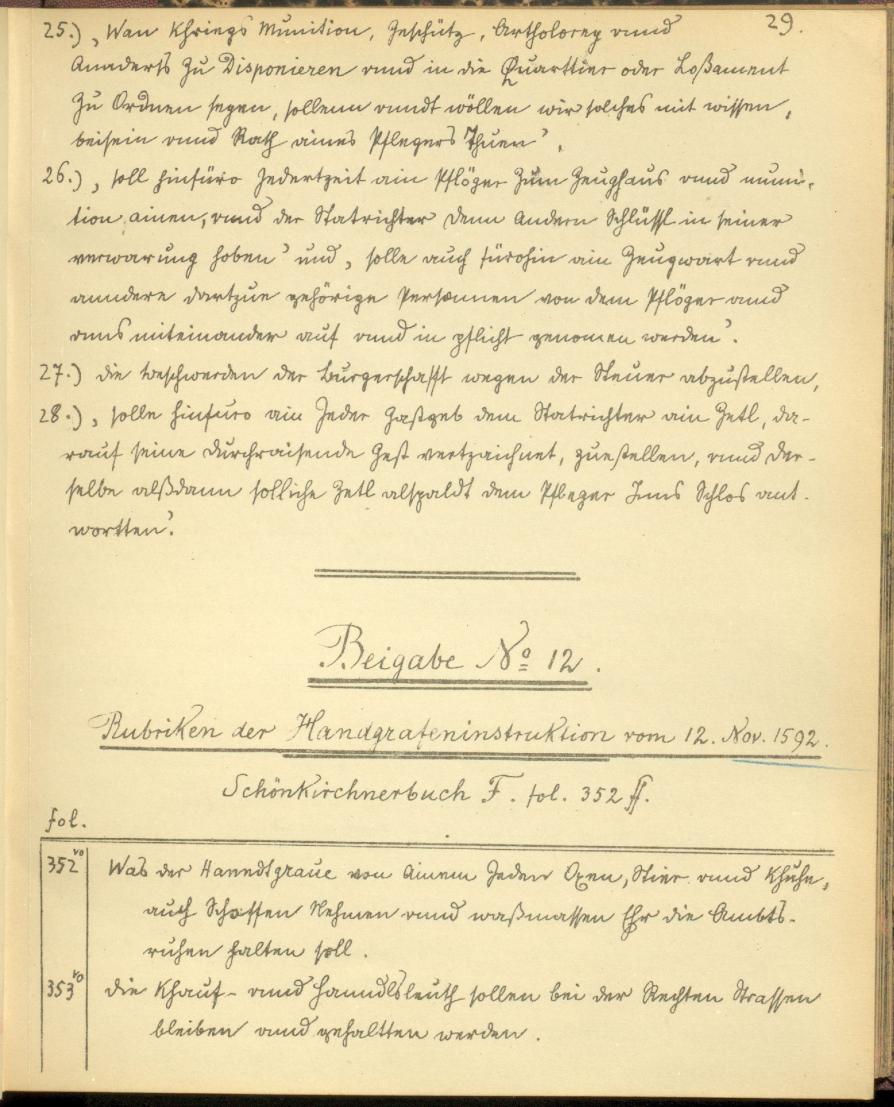 29.
25.) „Wan Khriegs Munition, Geschütz, Artholorey vnnd
Annderts Zu Disponieren vnnd in die Quarttier oder Loßament
Zu Ordnen segen, sollenn vnndt wöllen wir solches mit wissen,
beisein vnnd Rath aines Pflegers Thuen“.
26.) „soll hinfüro Jedertzeit ain Pflöger Zum Zeughaus vnnd muni-
tion ainen, vnnd der Statrichter denn Andern Schlüssl in seiner
verwarung haben“ und „solle auch fürohin ain Zeugwart vnnd
anndere dartzue gehörige Personnen von dem Pflöger vnnd
vnns miteinander auf vnnd in pflicht genomen werden“.
27.) die beschwerden der Burgerschafft wegen der Steuer abzustellen,
28.) „solle hinfuro ain Jeder Gastgeb dem Statrichter ain Zetl, da-
rauf seine durchraisende Gest vertzaichnet, zuestellen, vnnd der-
selbe alßdann solliche Zetl alspaldt dem Pfleger Inns Schlos ant-
wortten“.
Beigabe No 12.
Rubriken der Handgrafeninstruktion vom 12. Nov. 1592.
Schönkirchnerbuch F. fol. 352 ff.
fol.
352 vo Was der Hanndtgraue von Ainem Jeden Oxen, Stier vnnd Khuhe,
auch Schaffen Nehmen vnnd waßmassen Ehr die Ambts-
ruhen halten soll.
353 vo die Khauf- vnnd Hanndlsleuth sollen bei der Rechten Strassen
bleiben vnnd gehaltten werden.